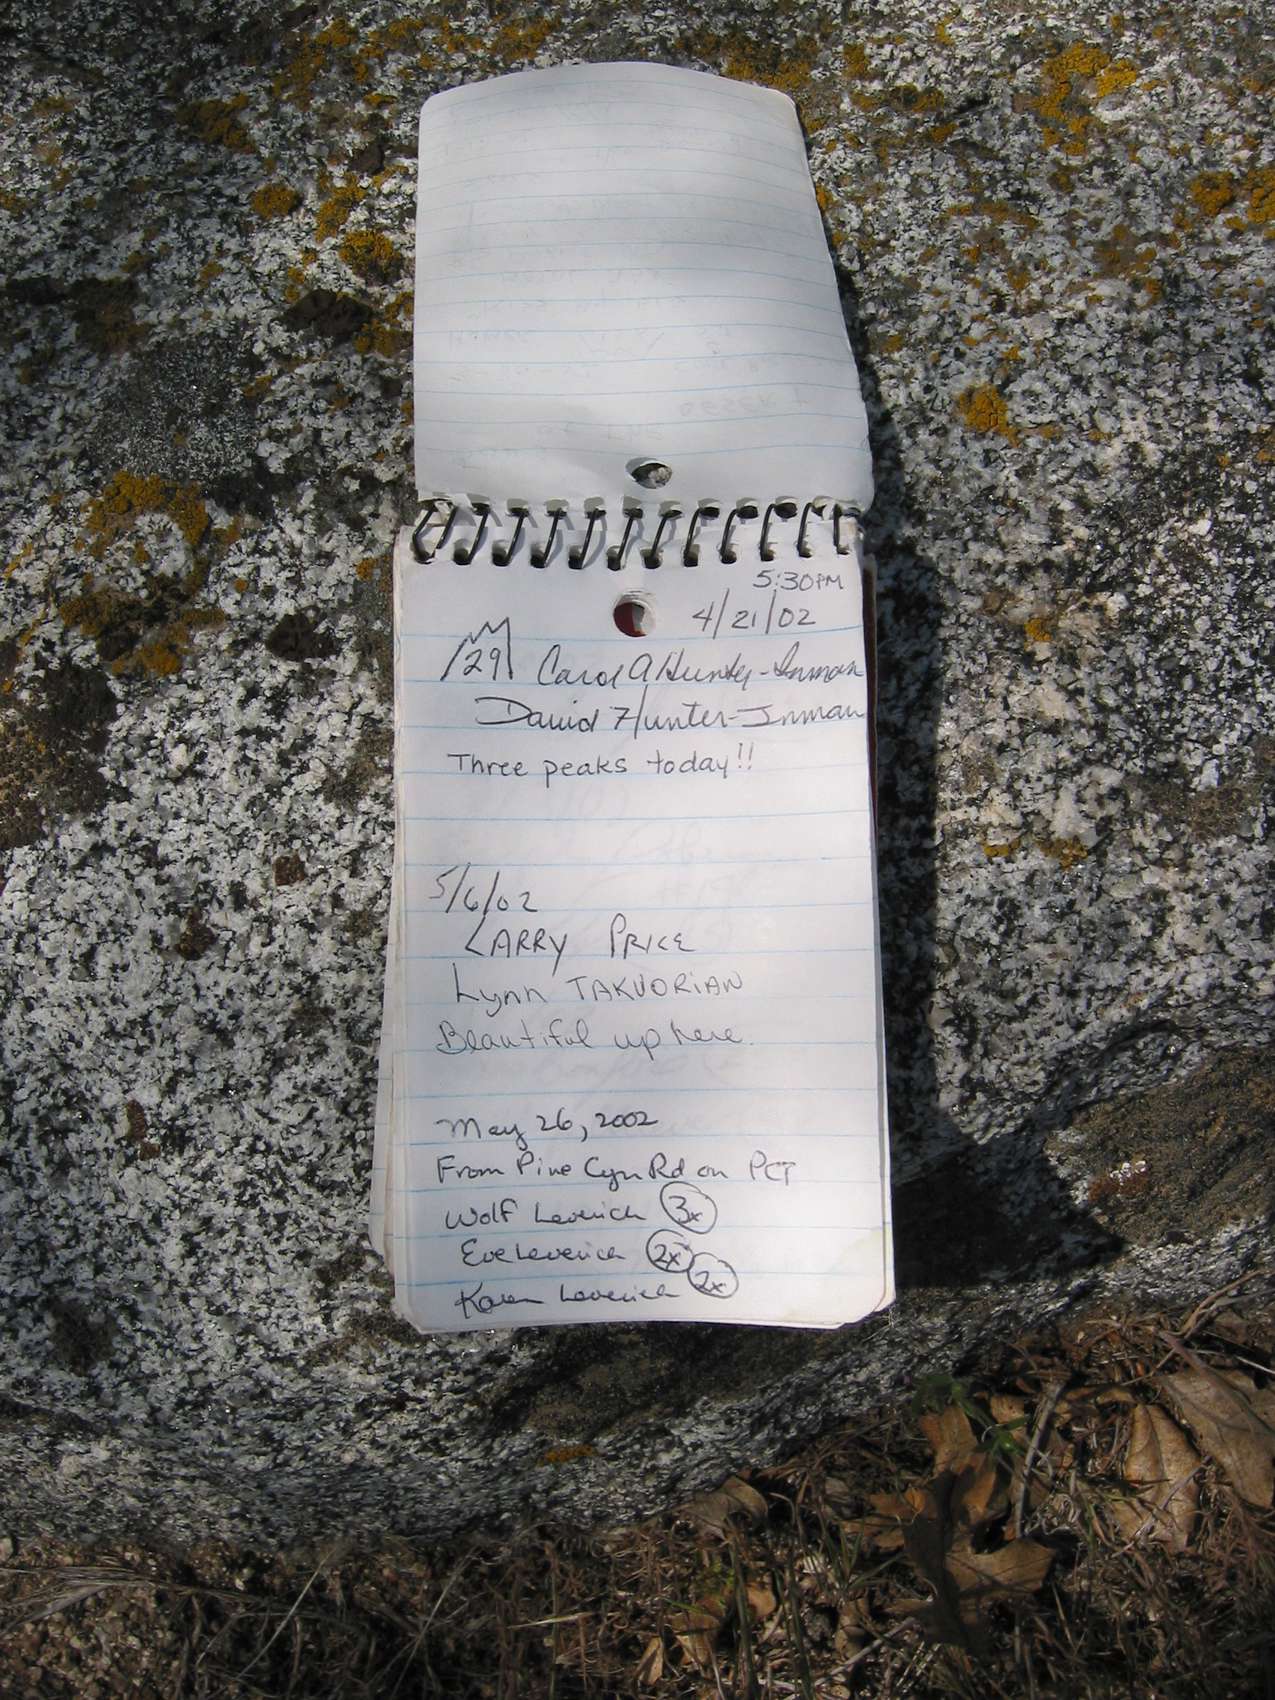 5:30PM
4/21/02
29 Carol A Hunter-Inman
David Hunter-Inman
Three peaks today!!
5/6/02
LARRY PRICE
Lynn TAKVORIAN
Beautiful up here.
May 26, 2002
From Pine Cyn Rd on PCT
Wolf Leverich 3x
Eve Leverich 2x
Karen Leverich 2x